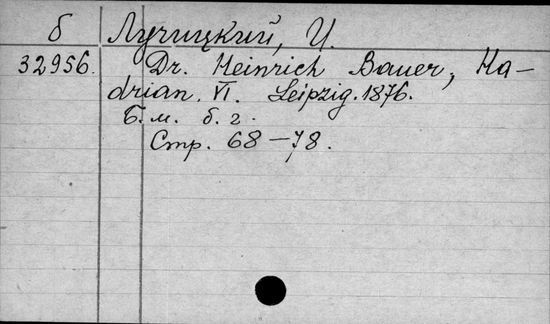 б Лучицкий, И.
32956. Dr. Heinrich Bauer, Ha-
drian. VI. Leipzig. 1876.
Б. м. б. г.
Стр. 68-78.